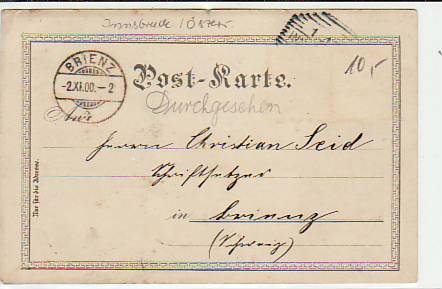 Innsbruck / Österr.
BRIENZ
-2.XI.00.--2
10,-
Post-Karte.
Durchgesehen
An
Herrn Christian Seid
Schriftsetzer
in Brienz
(Schweiz)
Nur für die Adresse.